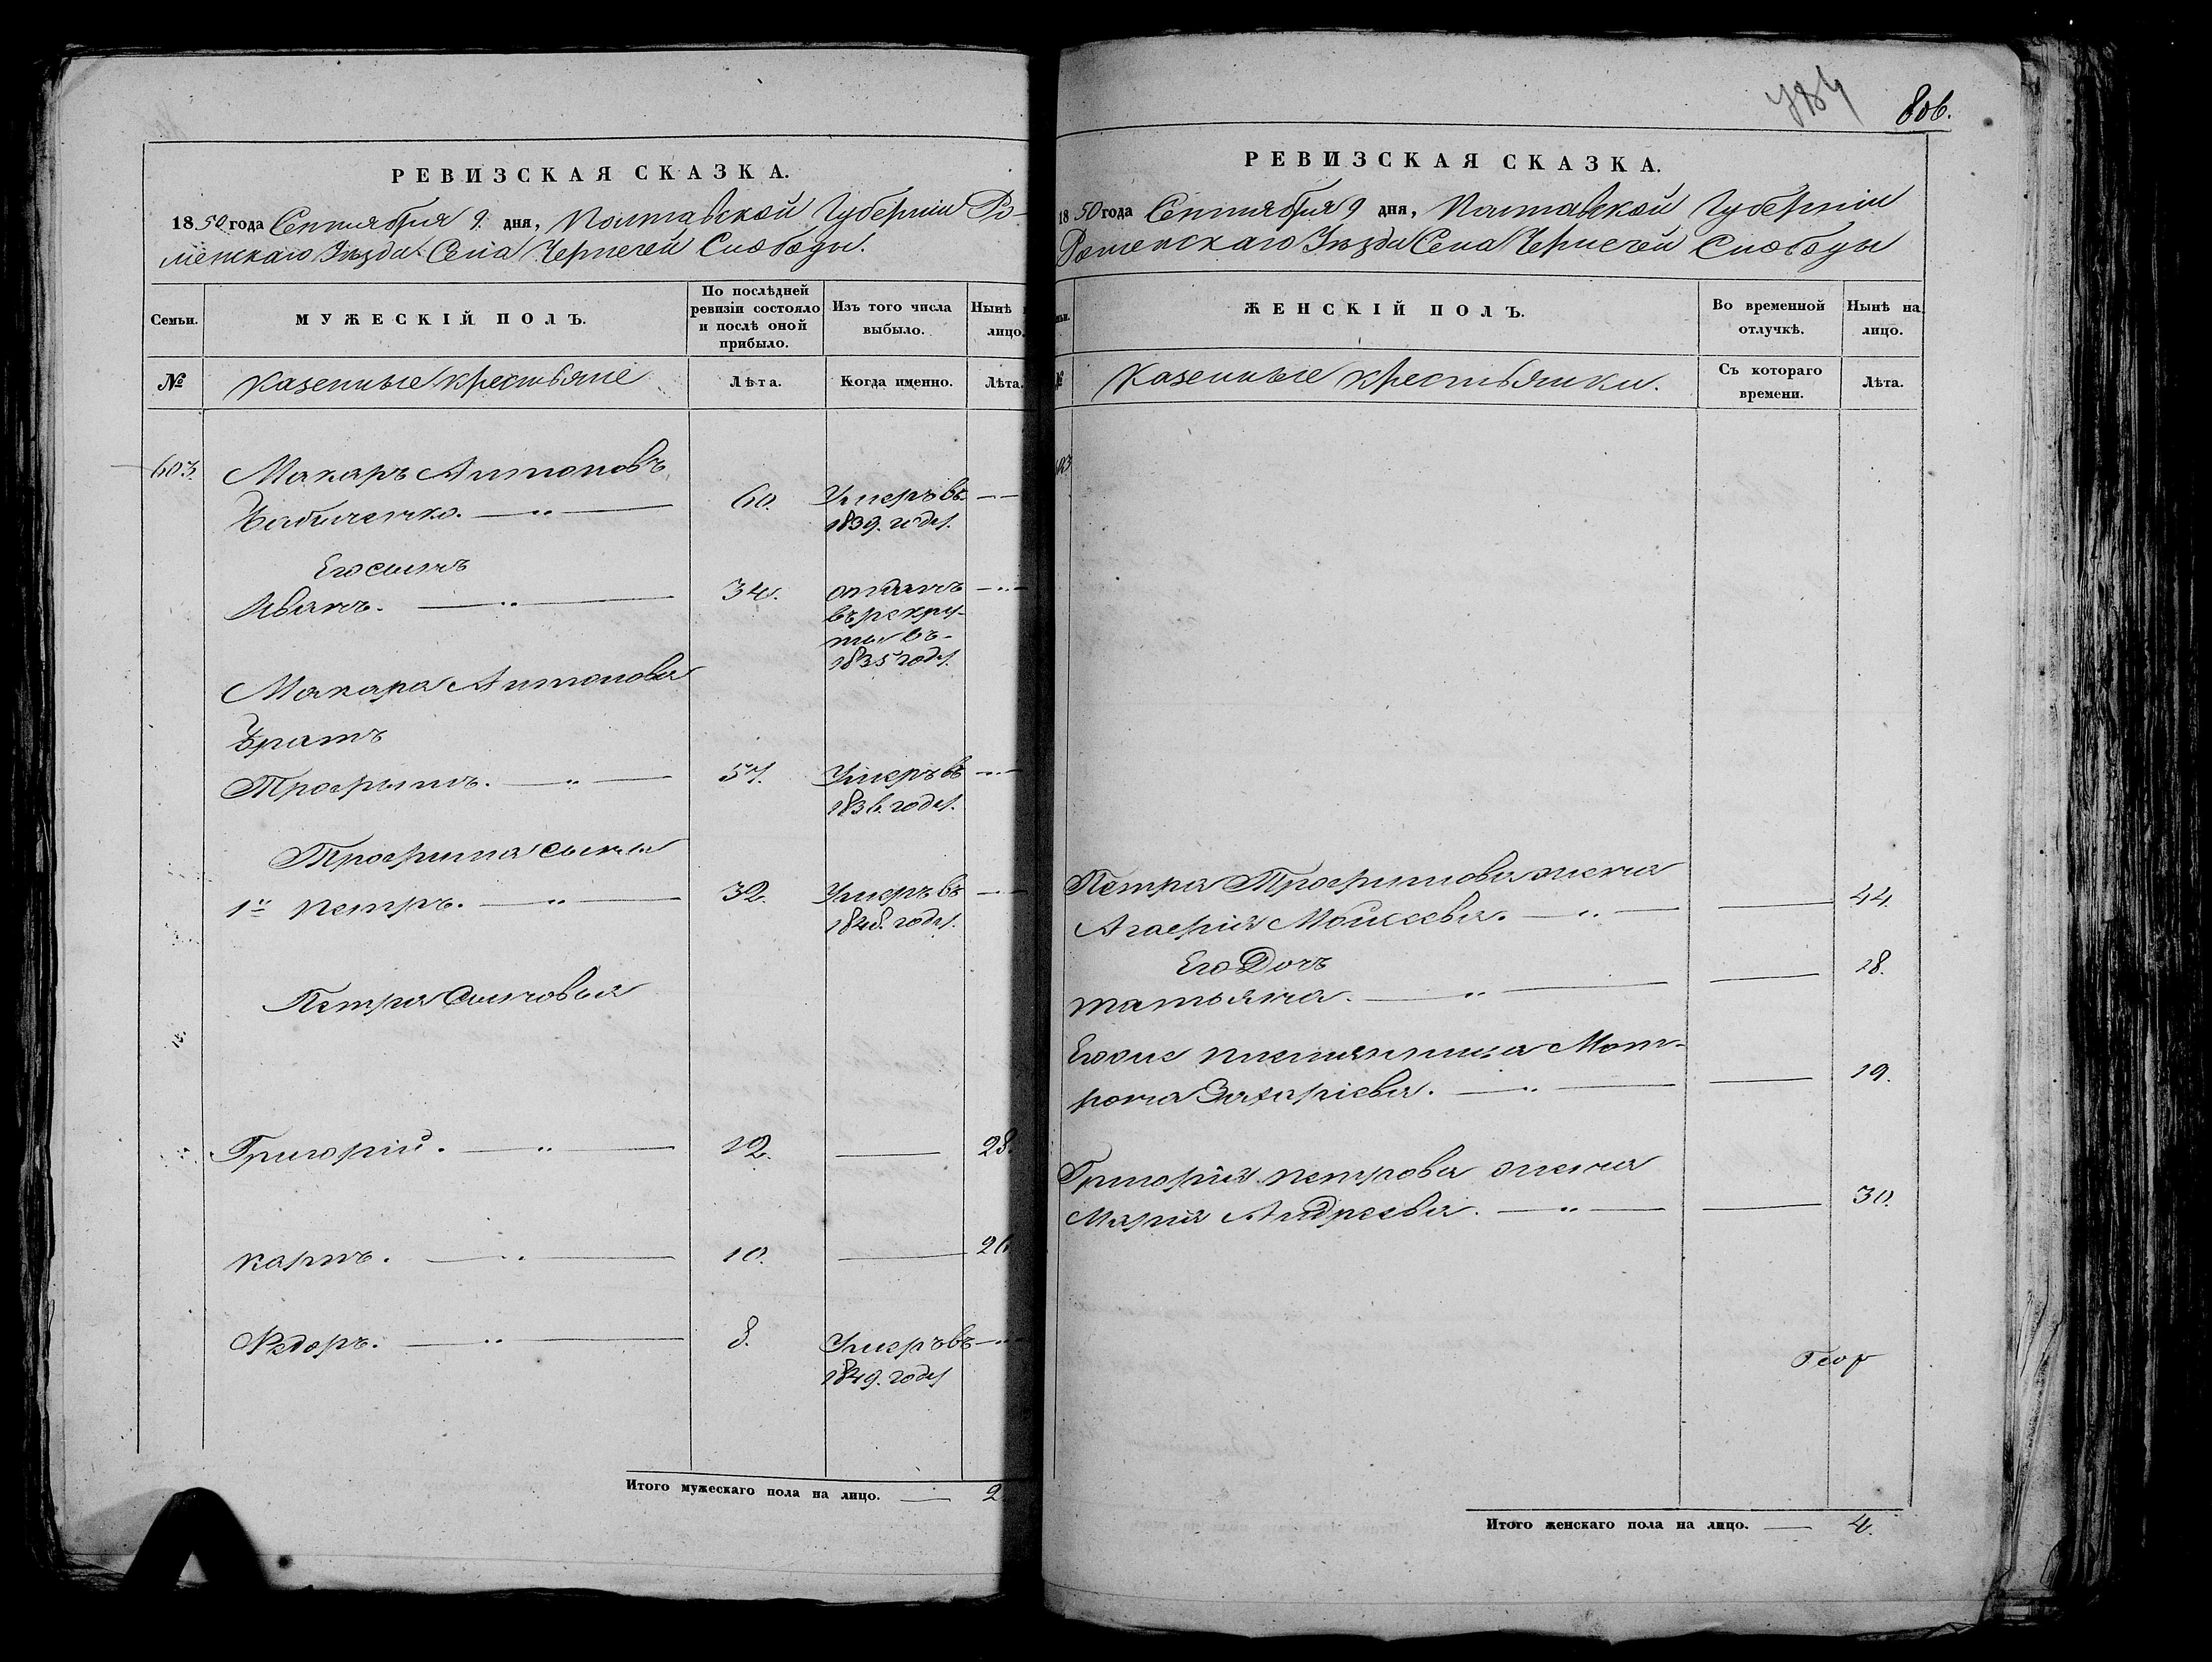 РЕВИЗСКАЯ СКАЗКА.
1850 года Сентября 9. дня, Полтавской Губерніи Ро-
менскаго Уѣзда Села Чернечей Слободы.
Семьи.
МУЖЕСКІЙ ПОЛЪ.
По послѣдней ревизіи состояло и послѣ оной прибыло.
Изъ того числа выбыло.
Нынѣ
лицо.
№
Казенные крестьяне
Лѣта.
Когда именно.
Лѣта.
603.
Макаръ Антоновъ
60. Умеръ въ
1839. году.
Его сынъ
Иванъ. 34. отданъ
въ рекру-
ты въ
1835 году.
Макара Антонова
Братъ
Трофимъ. 57. Умеръ въ
1836. году.
Трофима сыны
1й Петръ. 32. Умеръ въ
1848. году.
Петра Сыновья
Григорій. 12. 28.
Карпъ. 10. 26
Федоръ. 8. Умеръ въ
1849. году
Итого мужескаго пола на лицо. 2
784
806.
РЕВИЗСКАЯ СКАЗКА.
1850 года Сентября 9 дня, Полтавской Губерніи
Роменскаго Уѣзда Села Чернечей Слободы
ЖЕНСКІЙ ПОЛЪ.
Во временной отлучкѣ.
Нынѣ на лицо.
Казенные крестьянки.
Съ котораго времени.
Лѣта.
603
Петра Трофимова жена
Агафія Моисеева. 44.
Его Дочь
Татьяна. 18.
Его же племянница Мот-
рона Захаріева. 19.
Григорія Петрова жена
Марія Андреева. 30.
Геор
Итого женскаго пола на лицо. 4.